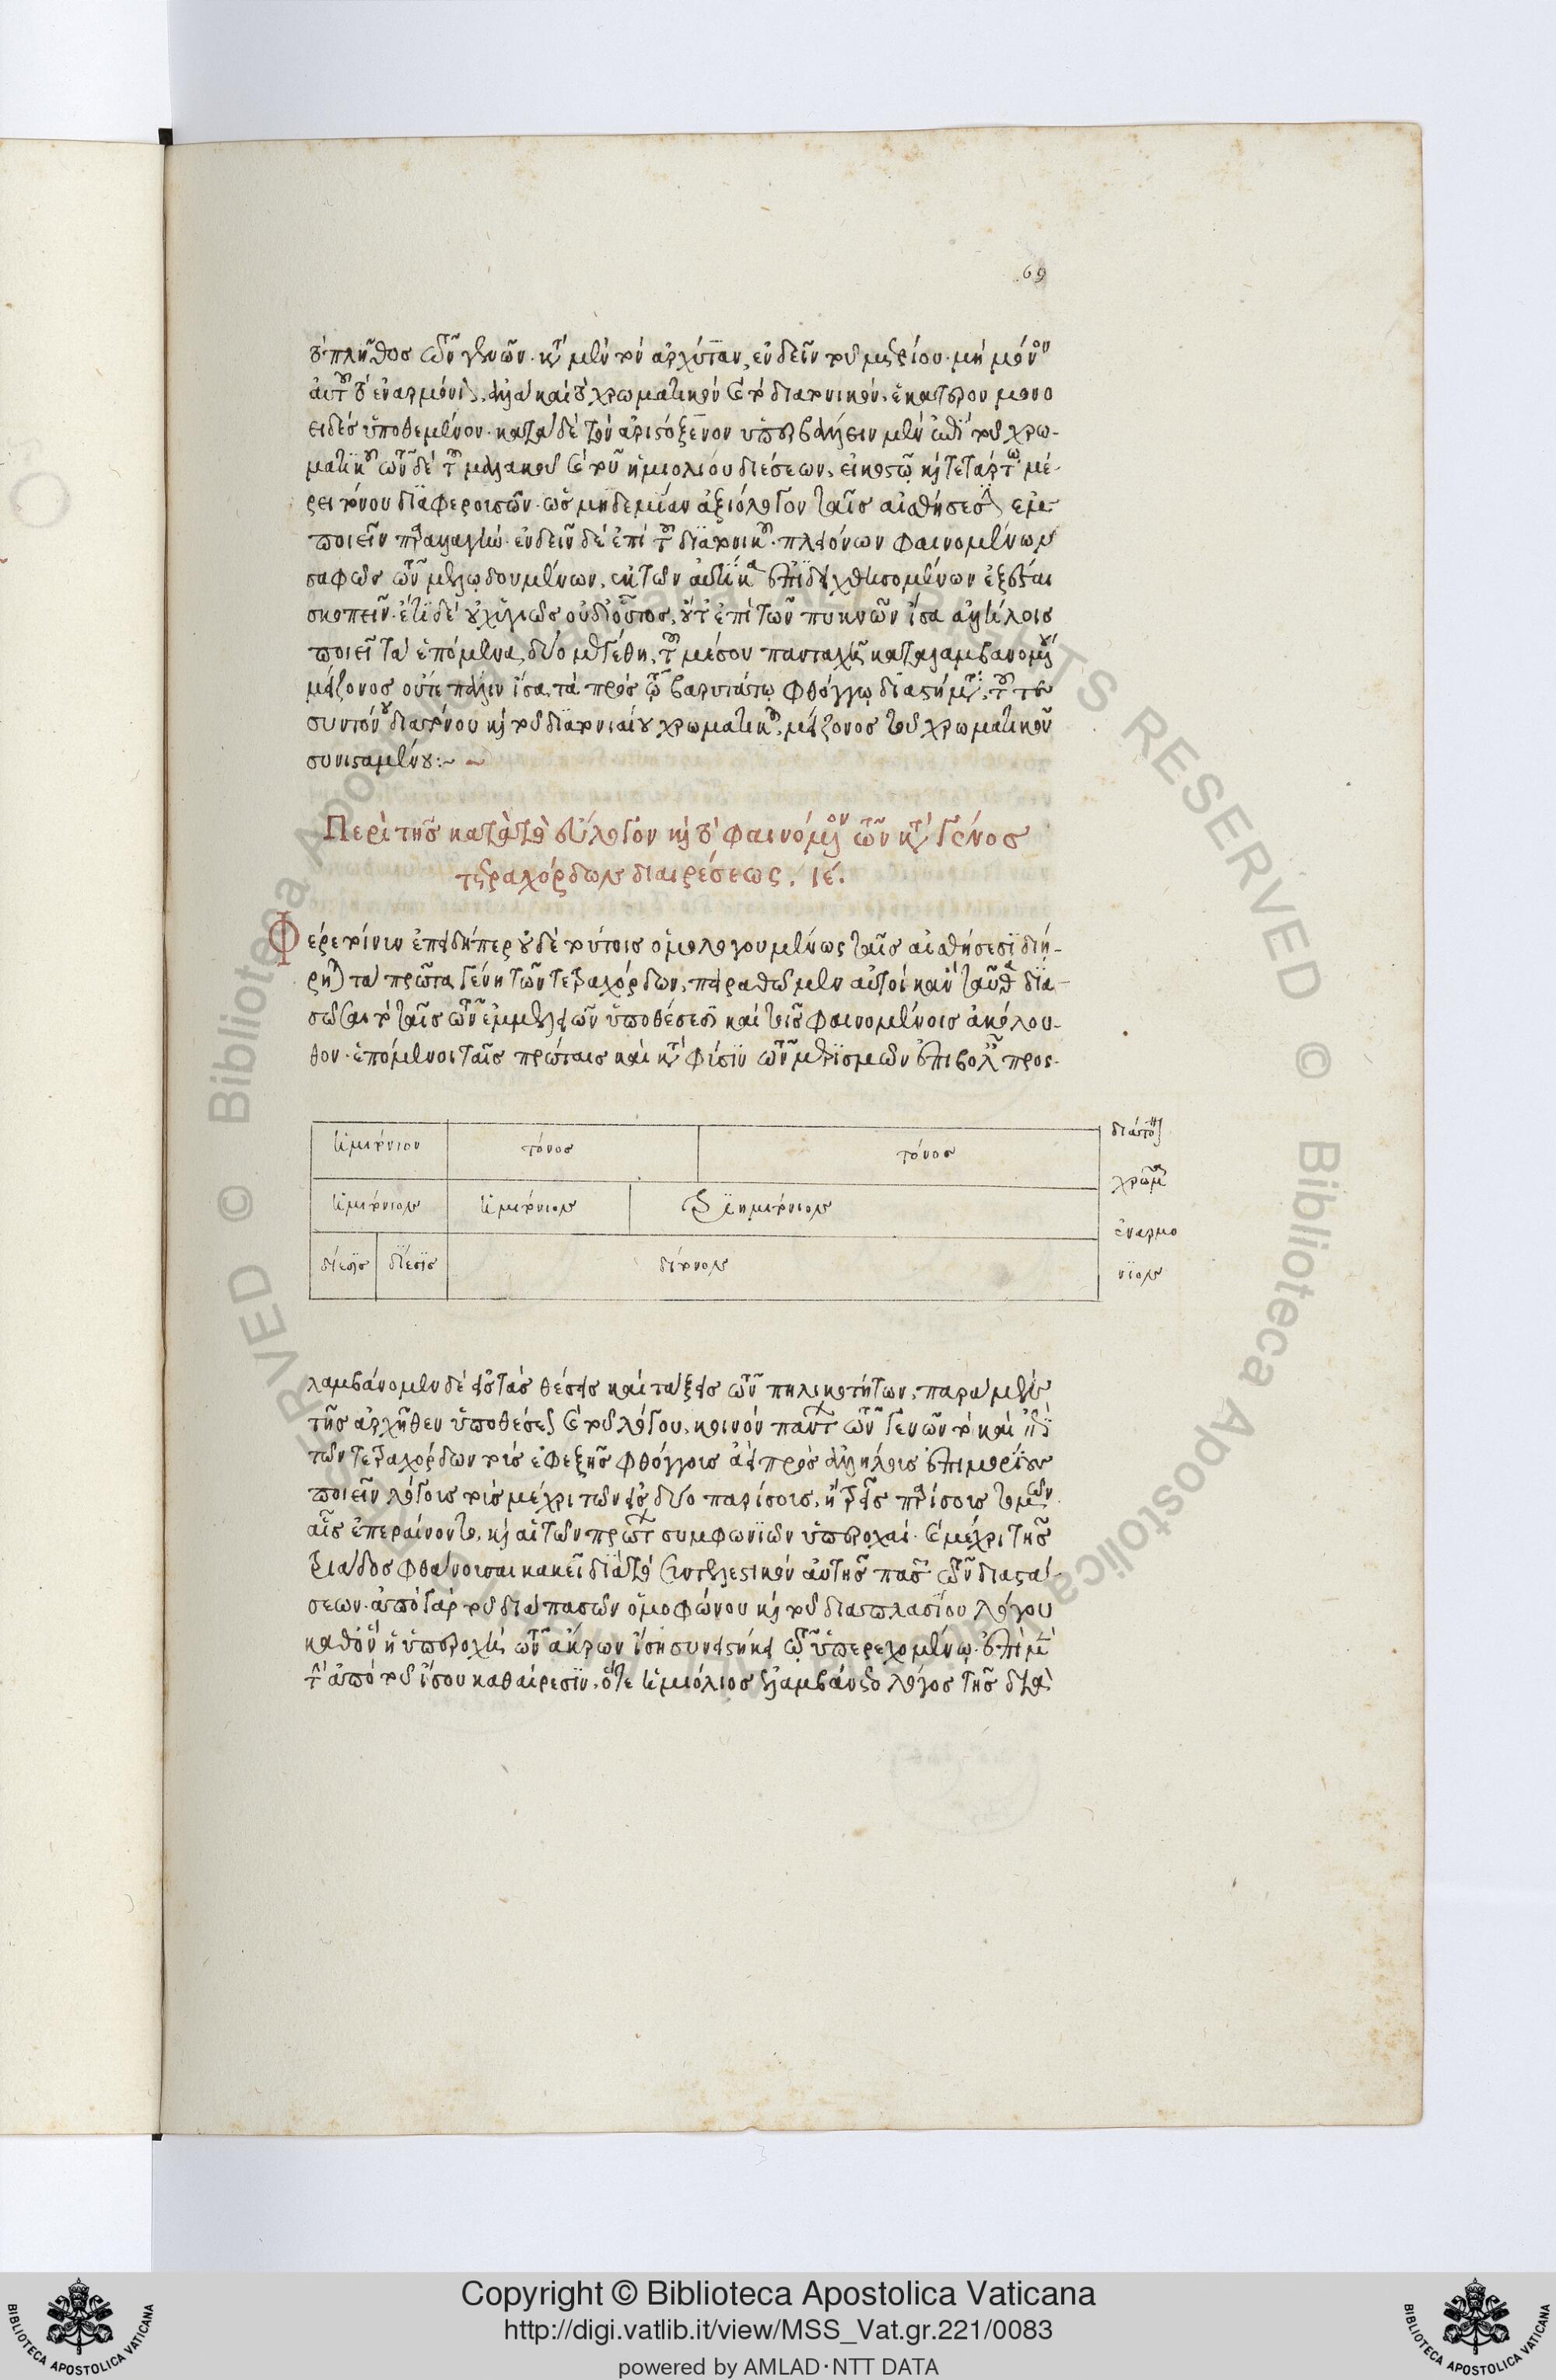 69
τὸ πλῆθος τῶν γενῶν· κατὰ μὲν τὸν ἀρχύταν, ἐνδεῖν τοῦ μετρίου· μὴ μόνον
αὐτοῦ τὸ ἐναρμόνιον, ἀλλὰ καὶ τὸ χρωματικὸν καὶ τὸ διατονικὸν, ἑκάτερον μονο
ειδὲς ὑποθεμένου· κατὰ δὲ τὸν ἀριστόξενον ὑπερβάλλειν μὲν ἐπὶ τοῦ χρω-
ματικοῦ τῶν δὲ τοῦ μαλακοῦ καὶ τοῦ ἡμιολίου διέσεων, εἰκοστῷ καὶ τετάρτῳ μέ-
ρει τόνου διαφερουσῶν· ὡς μηδεμίαν ἀξιόλογον ταῖς αἰσθήσεσιν ἐμ
ποιεῖν παραλλαγήν· ἐνδεῖν δὲ ἐπὶ τοῦ διατονικοῦ· πλειόνων φαινομένων
σαφῶς τῶν μελῳδουμένων, ἐξέσται
σκοπεῖν· ἔτι δὲ οὐχ ὑγιῶς οὐδ οὗτος, οὔτ ἐπὶ τῶν πυκνῶν ἴσα ἀλλήλοις
ποιεῖ τὰ ἑπόμενα δύο μεγέθη, τοῦ μέσου πανταχῆ καταλαμβανομένου
μείζονος οὔτε πάλιν ἴσα, τὰ πρὸς τῷ βαρυτάτῳ φθόγγῳ διαστήματα, τοῦ τε
συντόνου διατόνου καὶ τοῦ διατονιαίου χρωματικοῦ, μείζονος τοῦ χρωματικοῦ
συνισταμένου:~
Περὶ τῆς κατὰ τὸ εὔλογον καὶ τὸ φαινόμενον τῶν κατὰ γένος
τετραχόρδων διαιρέσεως. ιέ.
Φέρε τοίνυν ἐπειδήπερ οὐδὲ τούτοις ὁμολογουμένως ταῖς αἰσθήσεσι διή-
ρηται τὰ πρῶτα γένη τῶν τετραχόρδων, πειραθῶμεν αὐτοὶ κἀνταῦθα δια-
σῶσαι τὸ ταῖς τῶν ἐμμελειῶν ὑποθέσεσι καὶ τοῖς φαινομένοις ἀκόλου-
θον· ἑπόμενοι ταῖς πρώταις καὶ κατὰ φύσιν τῶν μερισμῶν ἐπιβολαῖς προς-
ἡμιτόνιον τόνος τόνος διάτον
ἡμιτόνιον ἡμιτόνιον τριημιτόνιον χρῶμα
δίεσις δίεσις δίτονον ἐναρμο
νιον
λαμβάνομεν δὲ εἰς τὰς θέσεις καὶ τάξεις τῶν πηλικοτήτων, παρὰ μὲν
τῆς ἀρχῆθεν ὑποθέσεως καὶ τοῦ λόγου, κοινὸν πάντων τῶν γενῶν τὸ καὶ ἐπὶ
τῶν τετραχόρδων τοὺς ἐφεξῆς φθόγγους ἀεὶ πρὸς ἀλλήλους ἐπιμορίους
ποιεῖν λόγους τοὺς μέχρι τῶν εἰς δύο παρίσους, ἢ τρεῖς παρίσους τομῶν
αἷς ἐπεραίνοντο, καὶ αἱ τῶν πρώτων συμφωνιῶν ὑπεροχαί· καὶ μέχρι τῆς
τριάδος φθάνουσαι κἀκεῖ διὰ τὸ συντελεστικὸν αὐτῆς πασῶν τῶν διαστά-
σεων· ἀπὸ γὰρ τοῦ διαπασῶν ὁμοφώνου καὶ τοῦ διπλασίου λόγου
καθ ὃν ἡ ὑπεροχὴ τῶν ἄκρων ἴση συνειστήκει τῷ ὑπερεχομένῳ· ἐπὶ μὲν
τὴν ἀπὸ τοῦ ἴσου καθαίρεσιν, ὅτε ἡμιόλιος ἐλαμβάνετο λόγος τῆς διὰ
Copyright © Biblioteca Apostolica Vaticana
http://digi.vatlib.it/view/MSS_Vat.gr.221/0083
powered by AMLAD·NTT DATA